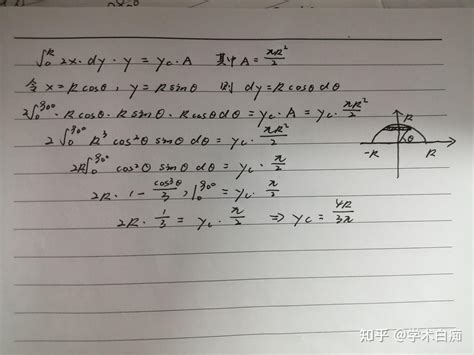 ∫₀ᴿ 2x·dy·y = y_c·A 其中A = πR²/2
令 x=Rcosθ, y=Rsinθ 则 dy=Rcosθdθ
2∫₀⁹⁰° ·Rcosθ·Rsinθ·Rcosθdθ = y_c·A = y_c·πR²/2
2∫₀⁹⁰° R³cos²θ sinθ dθ = y_c·πR²/2
2R∫₀⁹⁰° cos²θ sinθ dθ = y_c·π/2
2R·1-cos³θ/3, |₀⁹⁰° = y_c·π/2
2R·1/3 = y_c·π/2 ⇒ y_c = 4R/3π
R
θ
-R R
知乎 @学术白痴